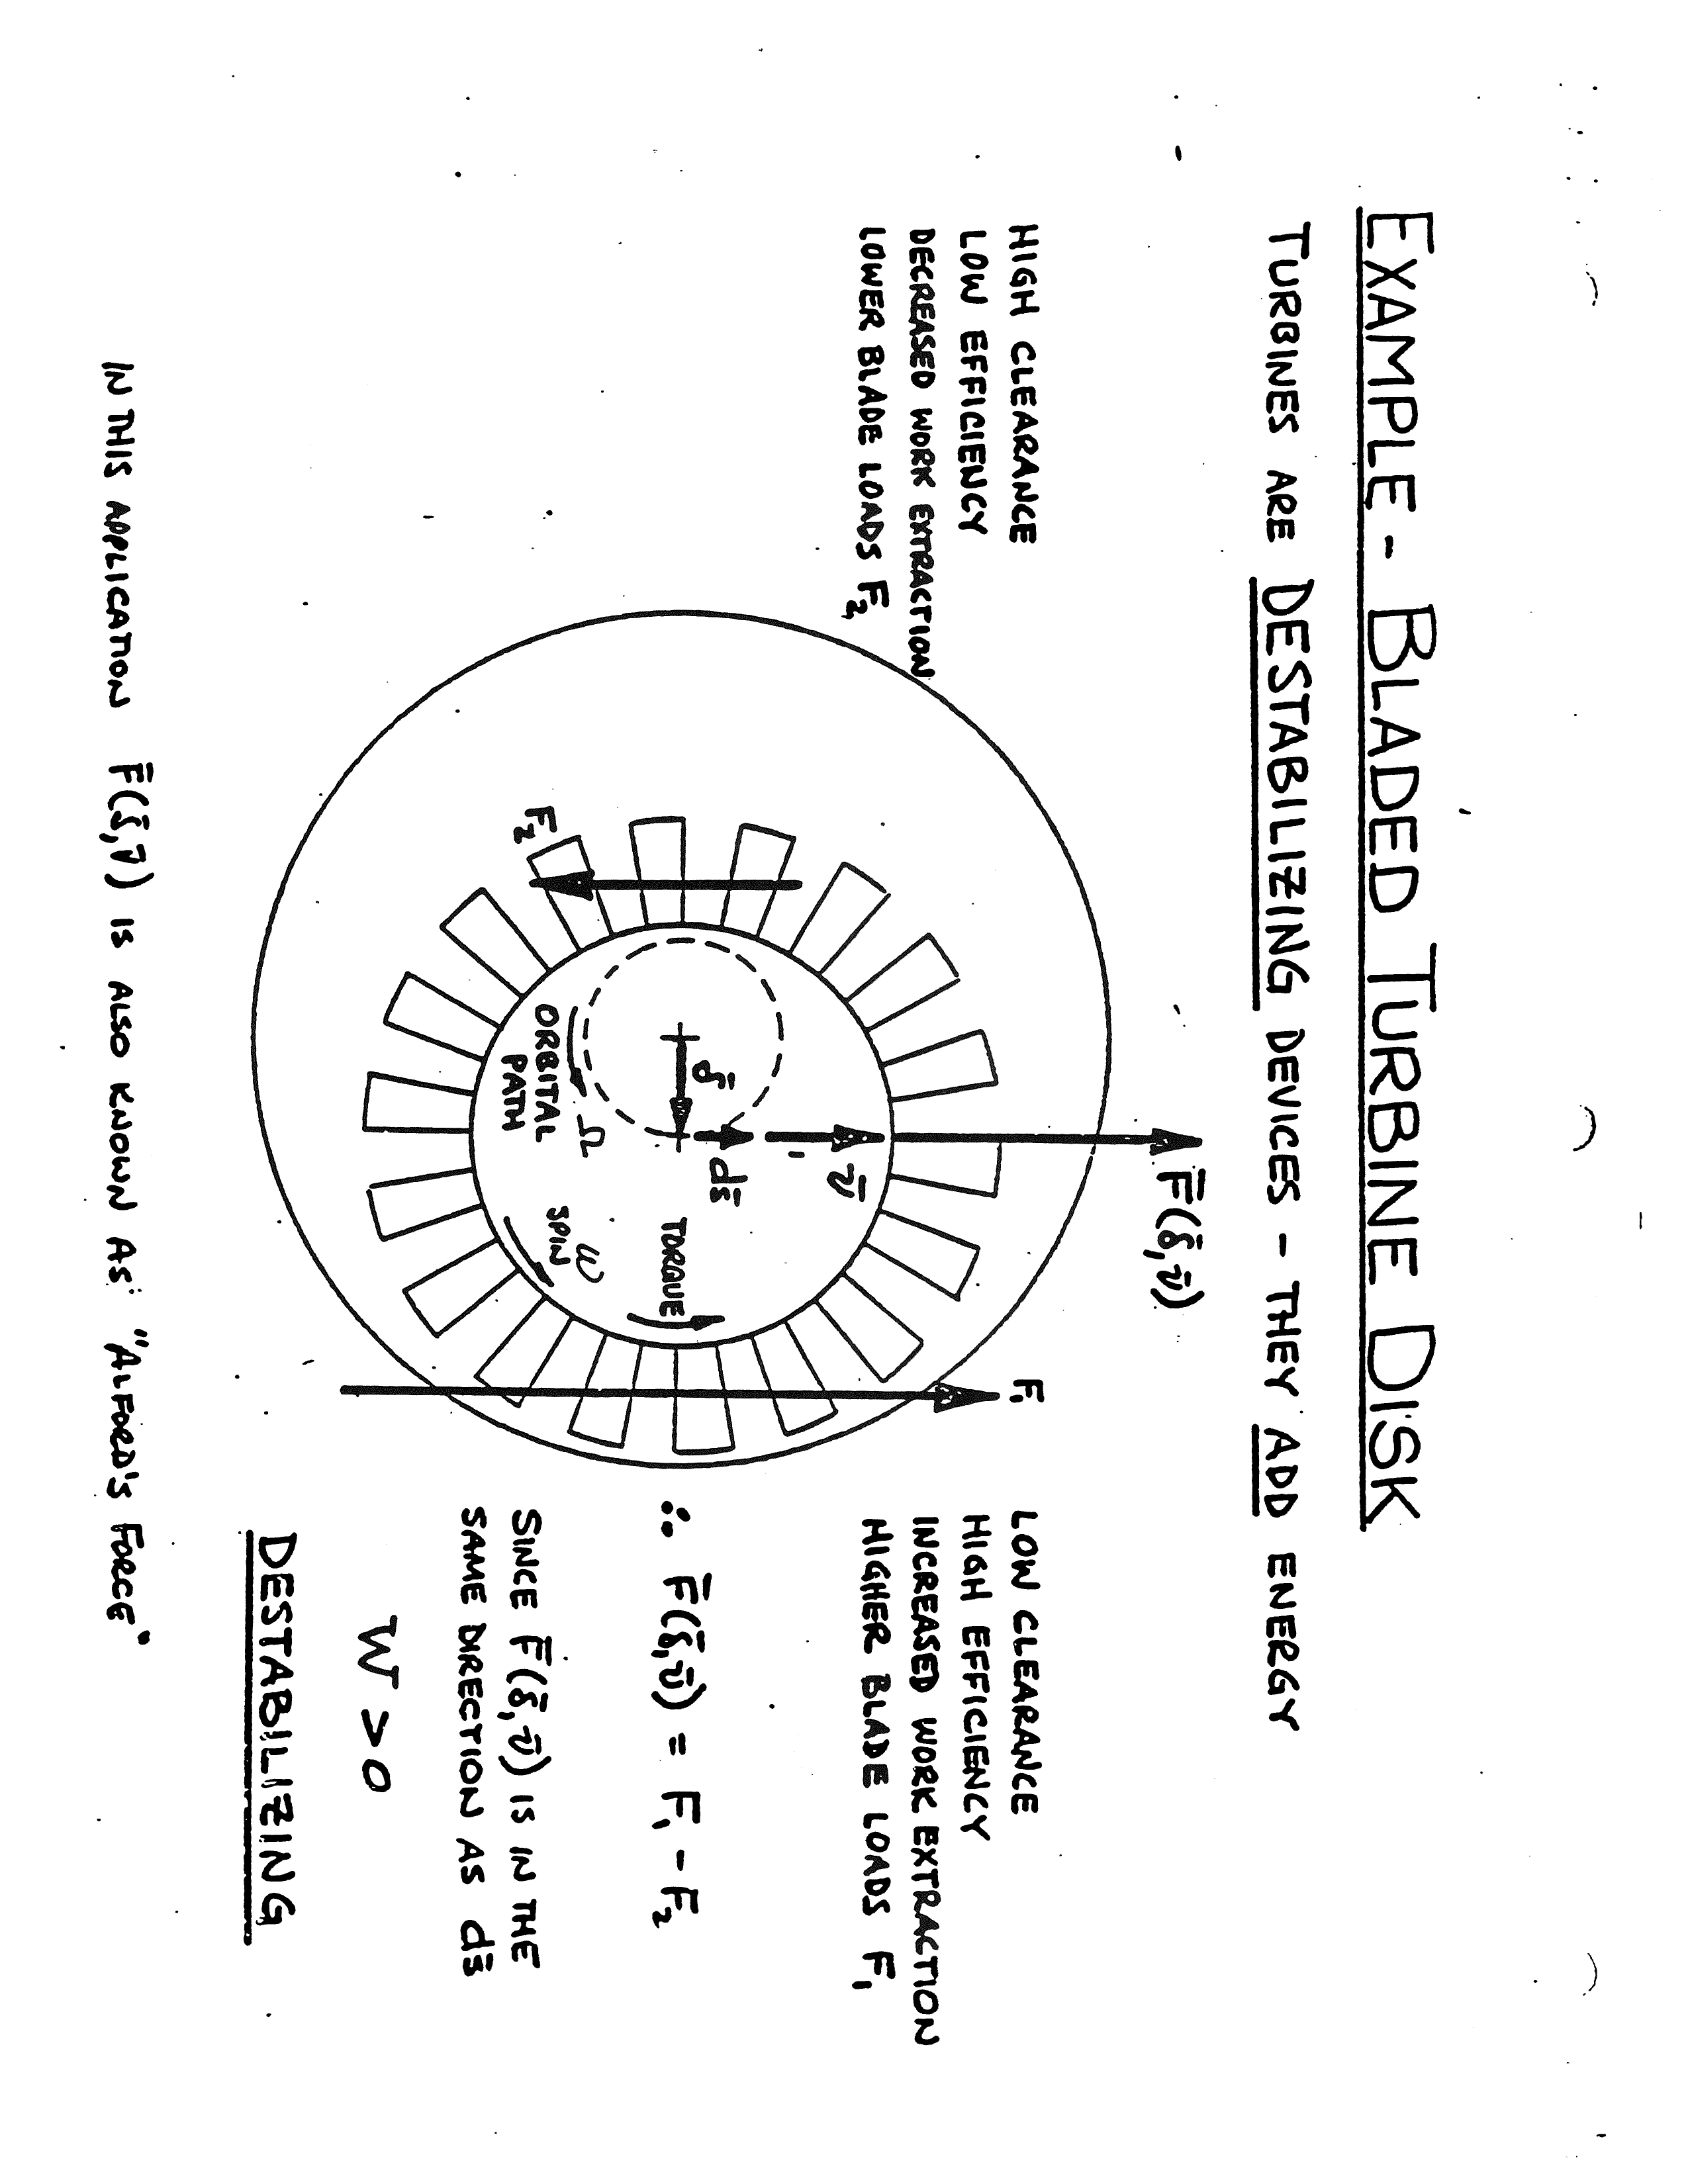 EXAMPLE - BLADED TURBINE DISK
TURBINES ARE DESTABILIZING DEVICES - THEY ADD ENERGY
HIGH CLEARANCE
LOW EFFICIENCY
DECREASED WORK EXTRACTION
LOWER BLADE LOADS F₂
F̄(δ̄,v̄)
F₁
v̄
ds̄
δ̄
TORQUE
Ω
ω
SPIN
ORBITAL
PATH
F₂
LOW CLEARANCE
HIGH EFFICIENCY
INCREASED WORK EXTRACTION
HIGHER BLADE LOADS F₁
∴ F̄(δ̄,v̄) = F₁ - F₂
SINCE F̄(δ̄,v̄) IS IN THE
SAME DIRECTION AS ds̄
W > 0
DESTABILIZING
IN THIS APPLICATION F̄(δ̄,v̄) IS ALSO KNOWN AS "ALFORD'S FORCE"